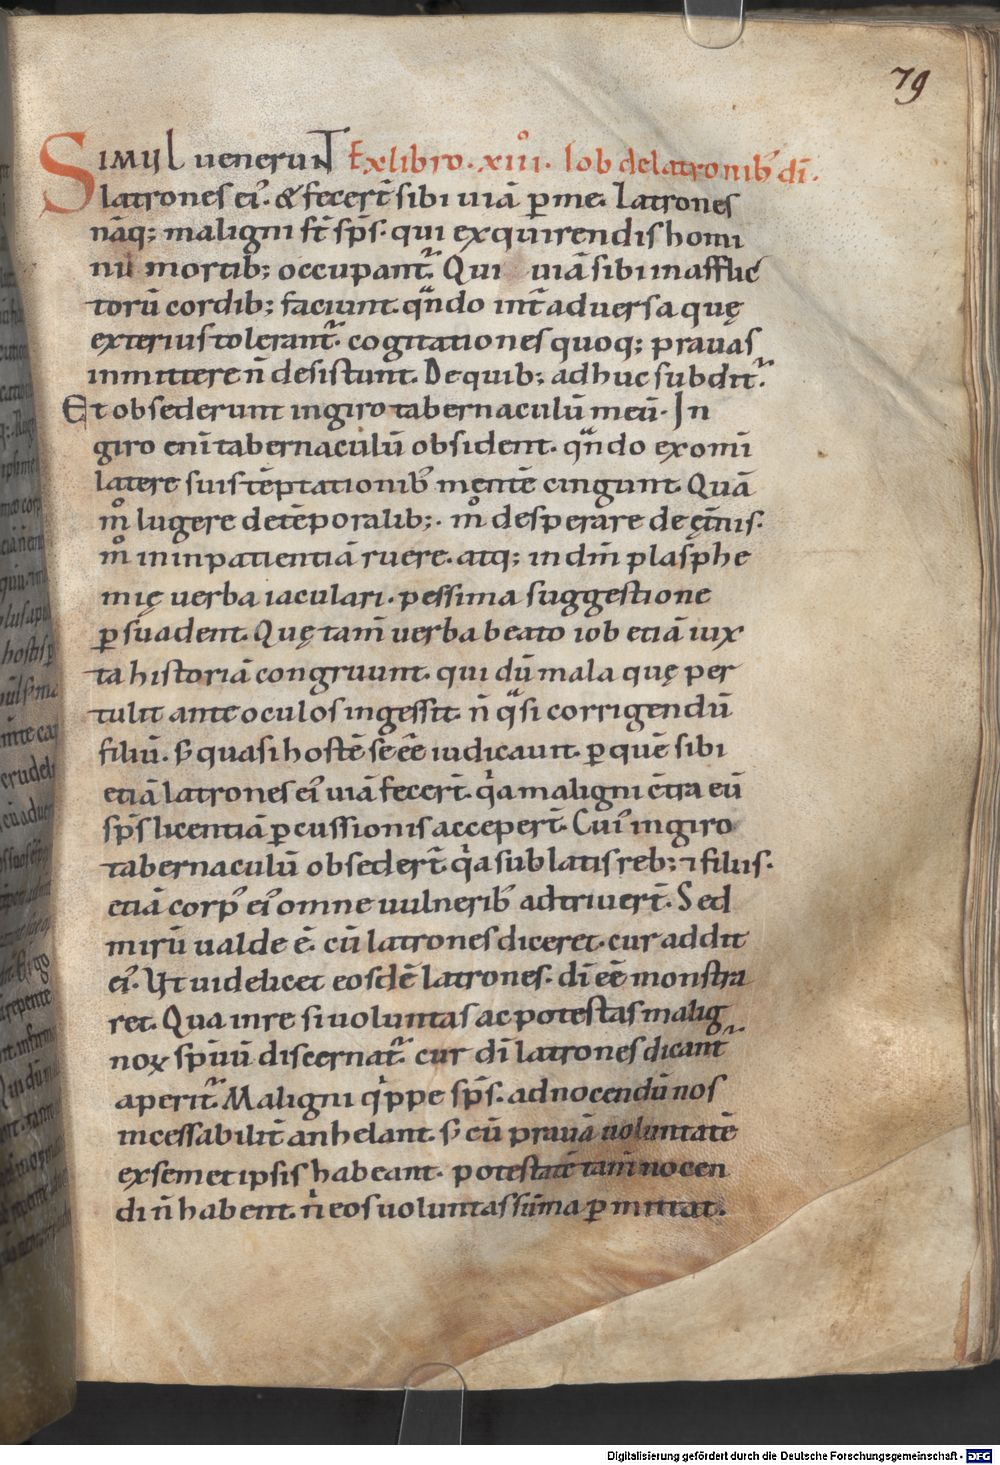 79
SIMUL uenerunT Ex libro. xiiii. Iob de latronib; di.
latrones ei'. & fecert̄ sibi uiā ꝑ me. Latrones
nāq; maligni st̄ sp̄s. qui exquirendis homi
nū mortib; occupant᷑. Qui uiā sibi in afflic
torū cordib; faciunt. qn̄do int̄ aduersa quę
exterius tolerant᷑. cogitationes quoq; prauas
inmittere n̄ desistunt. De quib; adhuc subdit᷑.
Et obsederunt in giro tabernaculū meū. In
giro enī tabernaculū obsident. qn̄do ex omī
latere suis tēptationib; mentē cingunt. Quā
mͦ lugere de tēporalib;. mͦ desperare de ęt̄nis.
mͦ in inpatientiā ruere. atq; in dm̄ plasphe
mię uerba iaculari. pessima suggestione
ꝑsuadent. Quę tam̄ uerba beato iob etiā iux
ta historiā congruunt. qui dū mala quę per
tulit ante oculos ingessit. n̄ qͣsi corrigendū
filiū. s; quasi hostē se eē iudicauit. ꝑ quē sibi
etiā latrones ei' uiā fecert̄. qͥa maligni c̄tra eū
sp̄s licentiā ꝑcussionis accepert̄. Cui' in giro
tabernaculū obsedert̄. qͥa sublatis reb; ⁊ filiis.
etiā corp' ei' omne uulnerib; adtriuert̄. Sed
mirū ualde ē. cū latrones diceret. cur addit
ei'. Ut uidelicet eosdē latrones. dī eē monstra
ret. Qua in re si uoluntas ac potestas malig
noꝝ spūū discernat᷑. cur dī latrones dicant᷑
aperit᷑. Maligni qͥppe sp̄s. ad nocendū nos
incessabilit̄ anhelant. s; cū prauā uoluntatē
ex semet ipsis habeant. potestatē tam̄ nocen
di n̄ habent. nͥ eos uoluntas sūma ꝑmittat.
Digitalisierung gefördert durch die Deutsche Forschungsgemeinschaft - DFG